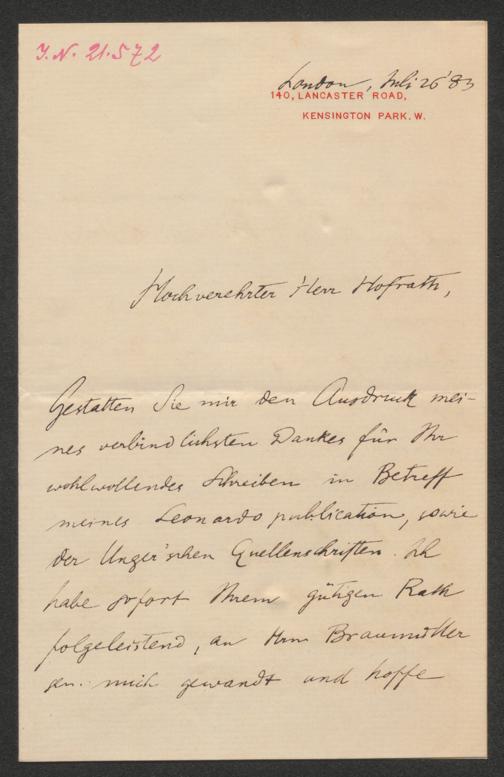 I.N. 21.572
London, Juli 26 '83
140, LANCASTER ROAD,
KENSINGTON PARK. W.
Hochverehrter Herr Hofrath,
Gestatten Sie mir den Ausdruck mei-
nes verbindlichsten Dankes für Ihr
wohlwollendes Schreiben in Betreff
meines Leonardo publication, sowie
der Unger'schen Quellenschriften. Ich
habe sofort Ihrem gütigen Rath
folgeleistend, an Hrn Braumüller
mich gewandt und hoffe